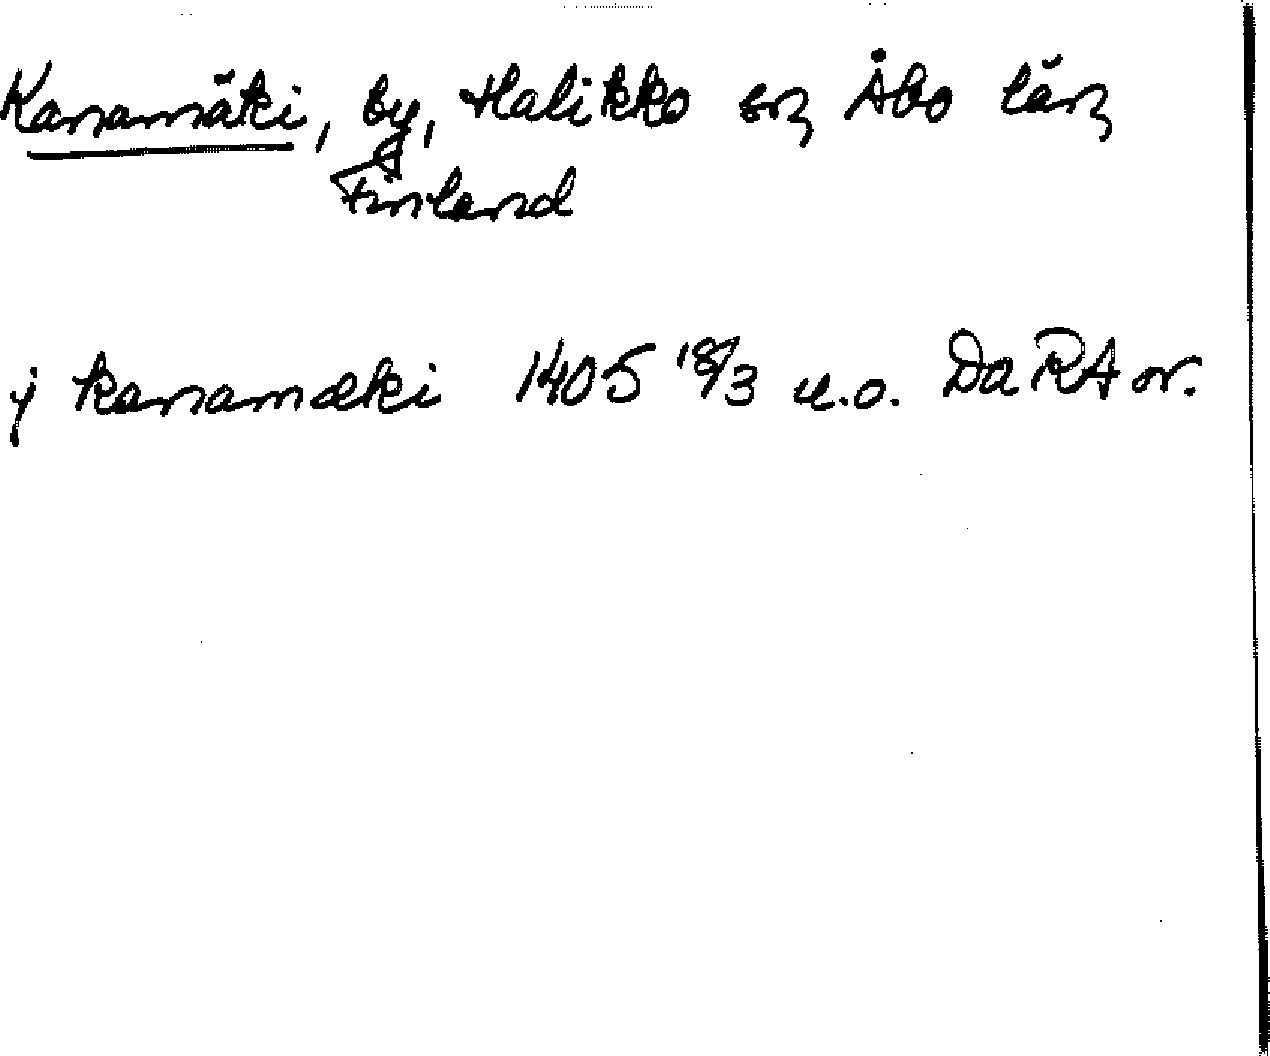 Kanamäki, by, Halikko sn, Åbo län,
Finland
j kanamæki 1405 18/3 u.o. Da RA or.